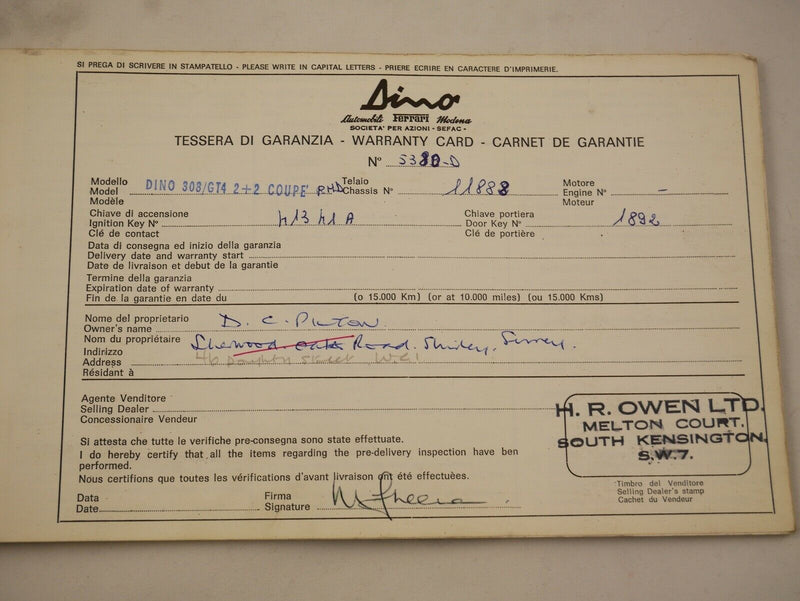 SI PREGA DI SCRIVERE IN STAMPATELLO - PLEASE WRITE IN CAPITAL LETTERS - PRIERE ECRIRE EN CARACTERE D'IMPRIMERIE.
Dino
Automobili Ferrari Modena
SOCIETA' PER AZIONI - SEFAC -
TESSERA DI GARANZIA - WARRANTY CARD - CARNET DE GARANTIE
N° 5380-D
Modello
Model DINO 308/GT4 2+2 COUPE' RHD
Modèle
Telaio
Chassis N° 11888
Motore
Engine N° -
Moteur
Chiave di accensione
Ignition Key N° 41341A
Clé de contact
Chiave portiera
Door Key N° 1892
Clé de portière
Data di consegna ed inizio della garanzia
Delivery date and warranty start
Date de livraison et debut de la garantie
Termine della garanzia
Expiration date of warranty
Fin de la garantie en date du (o 15.000 Km) (or at 10.000 miles) (ou 15.000 Kms)
Nome del proprietario
Owner's name D. C.
Nom du propriétaire
Indirizzo Sherwood Oaks Road. Shirley, Surrey.
Address 46 Doughty Street W.C.1
Résidant à
Agente Venditore
Selling Dealer
Concessionaire Vendeur
H. R. OWEN LTD.
MELTON COURT.
SOUTH KENSINGTON.
S.W.7.
Si attesta che tutte le verifiche pre-consegna sono state effettuate.
I do hereby certify that all the items regarding the pre-delivery inspection have ben
performed.
Nous certifions que toutes les vérifications d'avant livraison ont été effectuèes.
Timbro del Venditore
Selling Dealer's stamp
Cachet du Vendeur
Data
Date
Firma
Signature